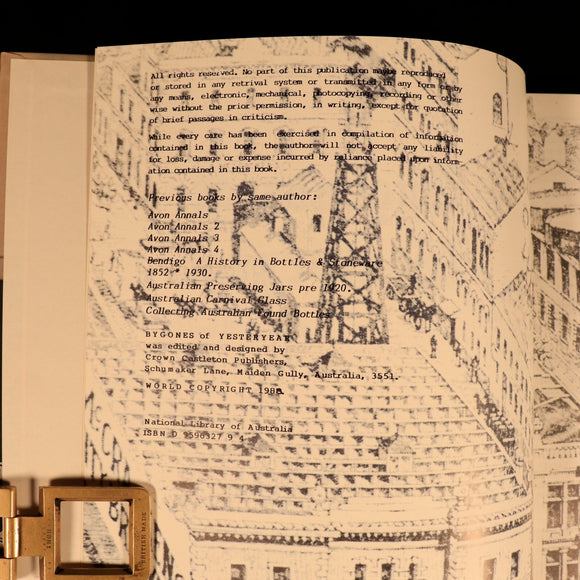 All rights reserved. No part of this publication maybe reproduced
or stored in any retrival system or transmitted in any form or by
any means, electronic, mechanical, photocopying, recording or other
wise without the prior permission, in writing, except for quotation
of brief passages in criticism.
While every care has been exercised in compilation of information
contained in this book, the author will not accept any liability
for loss, damage or expense incurred by reliance placed upon inform-
ation contained in this book.
Previous books by same author:
Avon Annals
Avon Annals 2
Avon Annals 3
Avon Annals 4
Bendigo A History in Bottles & Stoneware
1852 - 1930.
Australian Preserving Jars pre 1920.
Australian Carnival Glass
Collecting Australian Found Bottles
BYGONES of YESTERYEAR
was edited and designed by
Crown Castleton Publishers,
Schumaker Lane, Maiden Gully, Australia, 3551.
WORLD COPYRIGHT 1988.
National Library of Australia
ISBN 0 9596327 9 4
BRITISH MADE